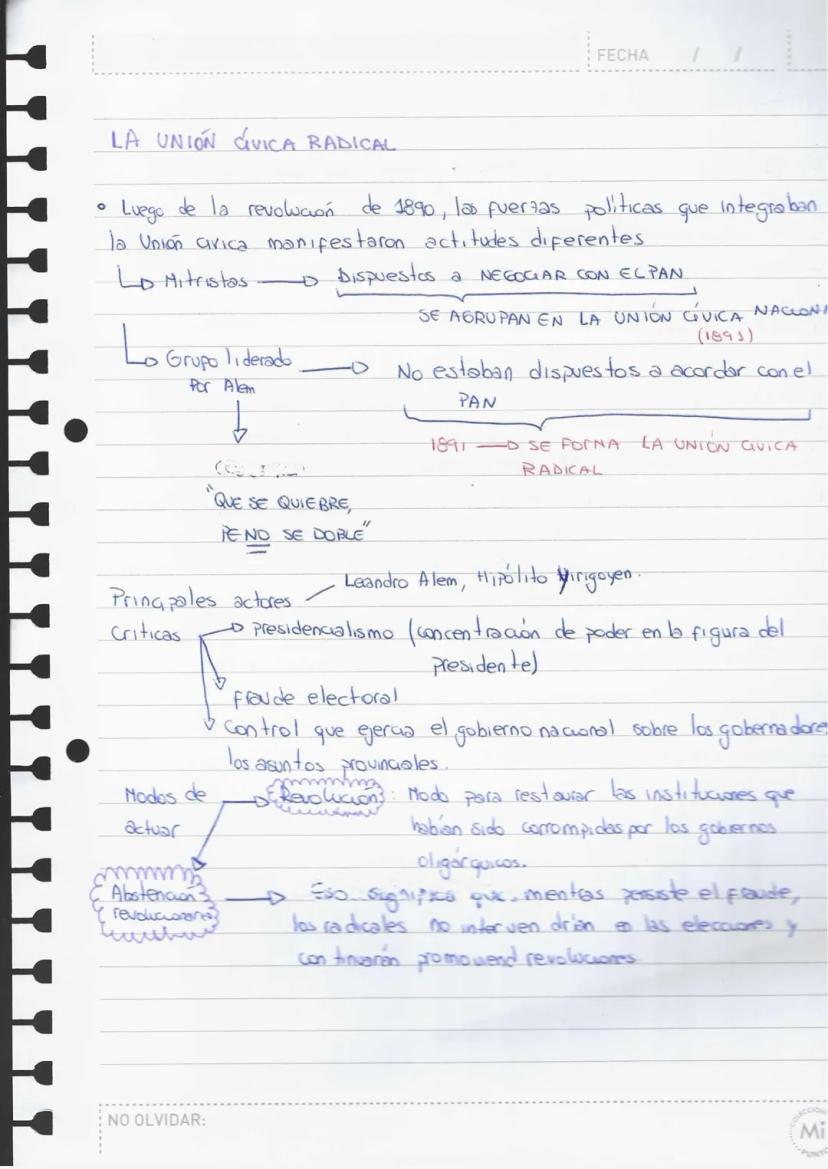 FECHA / /
LA UNIÓN CÍVICA RADICAL
• Luego de la revolución de 1890, las fuerzas políticas que integraban
la Unión civica manifestaron actitudes diferentes
Mitristas → Dispuestos a NEGOCIAR CON EL PAN
SE AGRUPAN EN LA UNIÓN CÍVICA NACION
(1891)
Grupo liderado → No estaban dispuestos a acordar con el
Por Alem
PAN
1891 → SE FORMA LA UNIÓN CIVICA
RADICAL
"QUE SE QUIEBRE,
PE NO SE DOBLE"
Leandro Alem, Hipólito Yirigoyen.
Principales actores
Criticas → Presidencialismo (concentración de poder en la figura del
presidente)
fraude electoral
Control que ejercia el gobierno nacional sobre los gobernadore
los asuntos provinciales.
Modos de → Revolución: Modo para restaurar las instituciones que
actuar habian sido corrompidas por los gobiernos
oligárquicos.
Abstención → Eso significa que, mentas persiste el fraude,
revolucionaria los radicales no interven drian en las elecciones y
con tinuarán promoviend revoluciones
NO OLVIDAR:
COLECCION
Mi
PUNTO